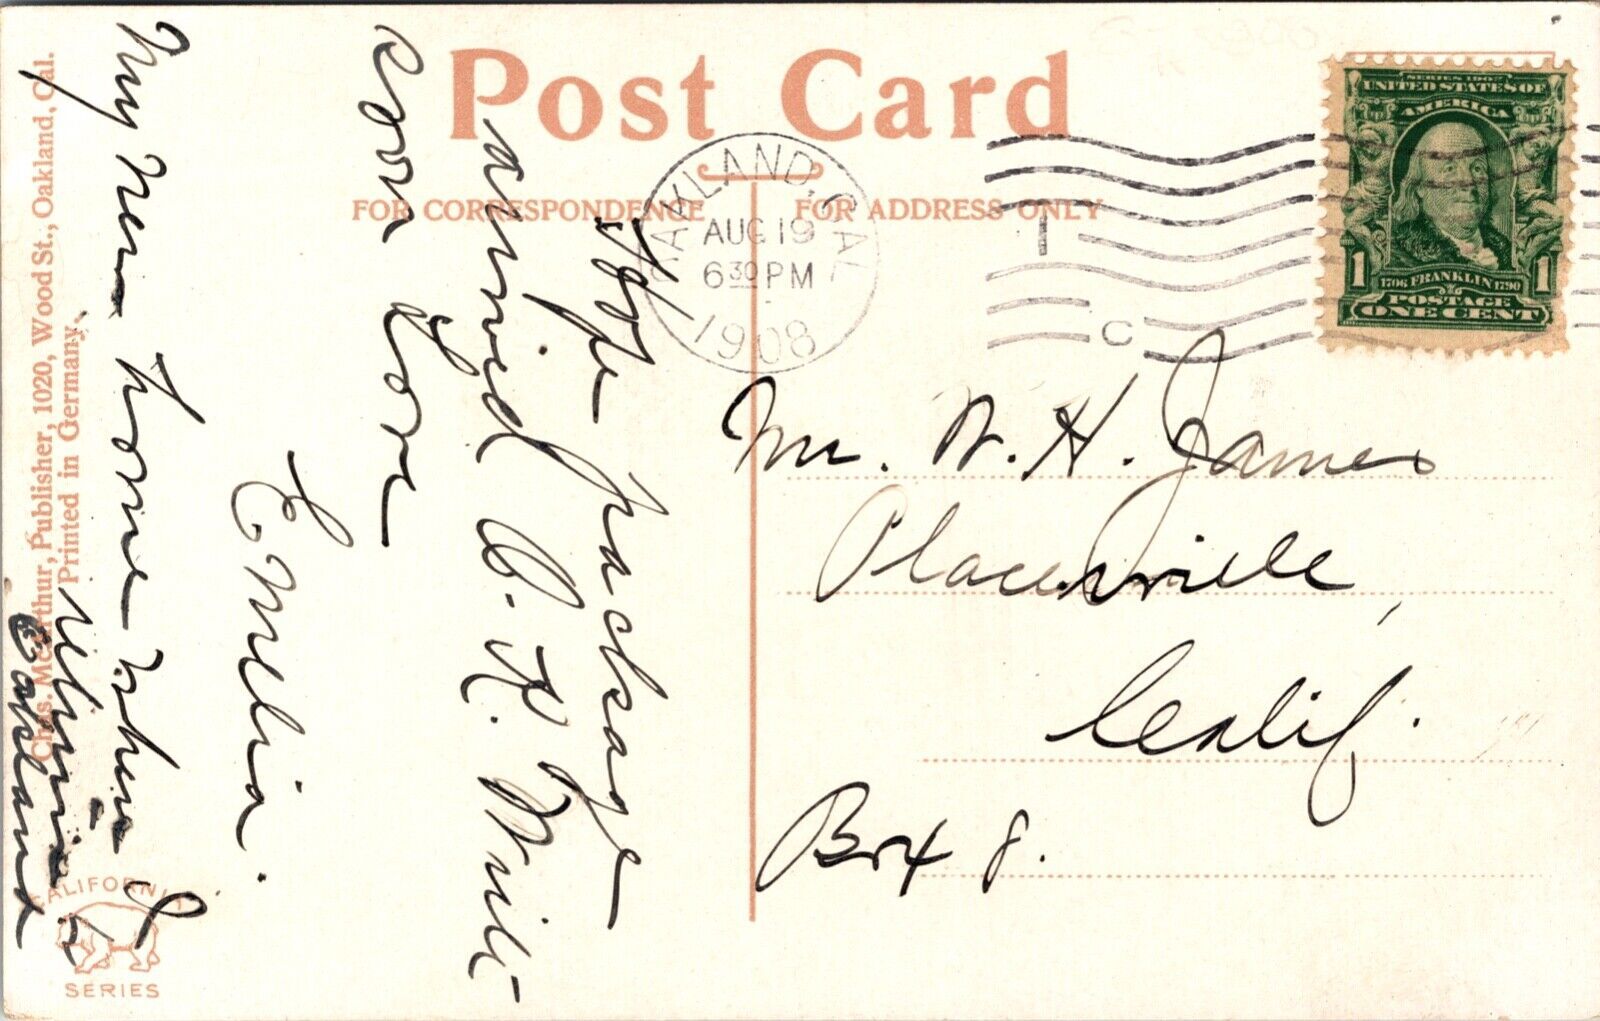 Post Card
FOR CORRESPONDENCE
FOR ADDRESS ONLY
OAKLAND, CAL.
AUG 19
6 30 PM
1908
T
C
SERIES 1902
UNITED STATES OF
AMERICA
1 1
1706 FRANKLIN 1790
POSTAGE
ONE CENT
Mr. W. H. James
Placerville,
Calif.
Box 8.
Hope package
arrived O.K. Write
soon Love
Emelia.
My new home when I
return to
Oakland
Chas. McArthur, Publisher, 1020, Wood St., Oakland, Cal.
Printed in Germany.
CALIFORNIA
SERIES